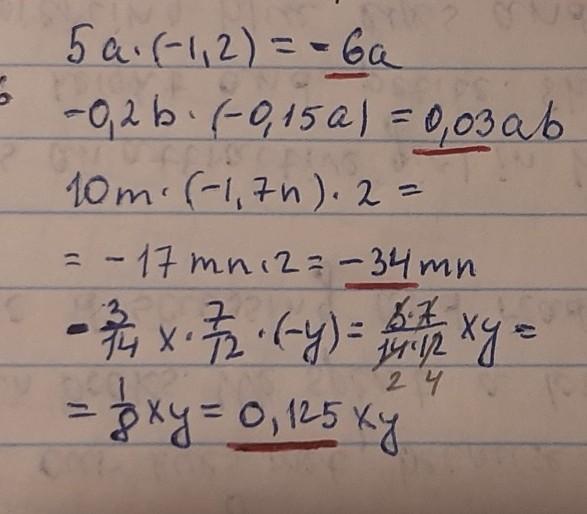 5a·(-1,2) = -6a
-0,2b·(-0,15a) = 0,03ab
10m·(-1,7n)·2 =
= -17mn·2 = -34mn
-3/14 x·7/12·(-y) = 3·7/14·12 xy =
2 4
= 1/8 xy = 0,125xy